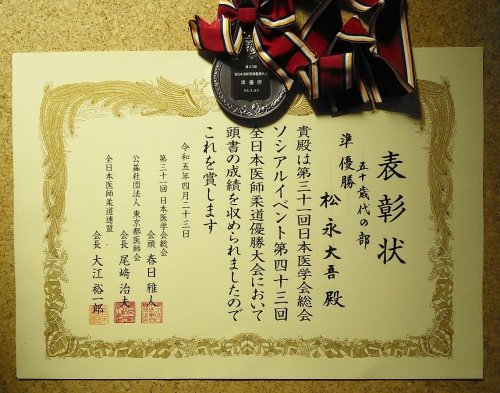 表彰状
五十歳代の部
準優勝
松永大吾殿
貴殿は第三十一回日本医学会総会
ソシアルイベント第四十三回
全日本医師柔道優勝大会において
頭書の成績を収められましたので
これを賞します
令和五年四月二十三日
第三十一回 日本医学会総会
会頭 春日雅人
公益社団法人 東京都医師会
会長 尾﨑治夫
全日本医師柔道連盟
会長 大江裕一郎
準優勝